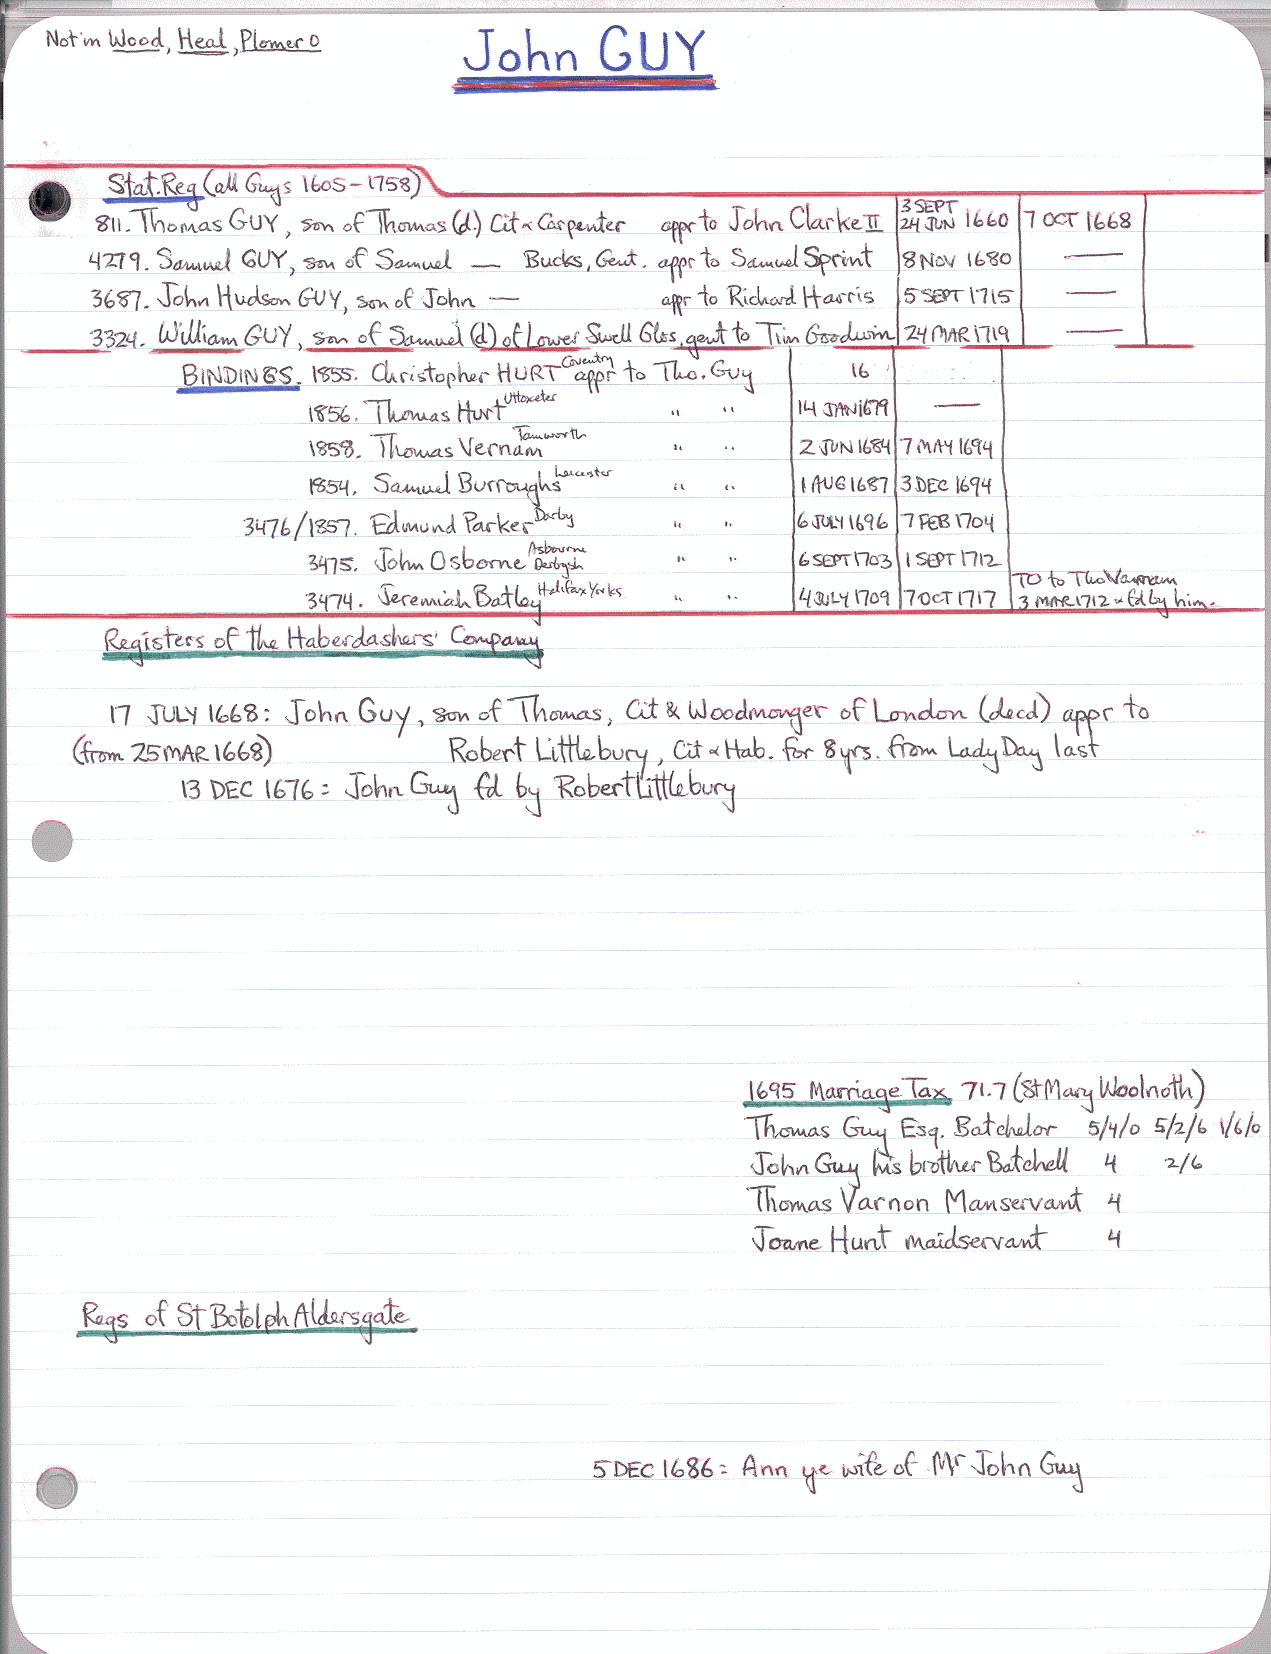 Not in Wood, Heal, Plomer 0
John GUY
Stat. Reg (all Guys 1605-1758)
811. Thomas GUY, son of Thomas (d.) Cit & Carpenter appr to John Clarke II 3 SEPT 24 JUN 1660 7 OCT 1668
4279. Samuel GUY, son of Samuel — Bucks, Gent. appr to Samuel Sprint 8 NOV 1680 —
3687. John Hudson GUY, son of John — appr to Richard Harris 5 SEPT 1715 —
3324. William GUY, son of Samuel (d) of Lower Swell Glos, gent to Tim Goodwin 24 MAR 1719 —
BINDINGS. 1855. Christopher HURT Coventry appr to Tho. Guy 16
1856. Thomas Hurt Uttoxeter " " 14 JAN 1679 —
1858. Thomas Vernam Tamworth " " 2 JUN 1684 7 MAY 1694
1854. Samuel Burroughs Leicester " " 1 AUG 1687 3 DEC 1694
3476/1857. Edmund Parker Derby " " 6 JULY 1696 7 FEB 1704
3475. John Osborne Asbourne Derbysh " " 6 SEPT 1703 1 SEPT 1712
3474. Jeremiah Batley Halifax Yorks " " 4 JULY 1709 7 OCT 1717 TO to Tho Varnam 3 MAR 1712 & fd by him.
Registers of the Haberdashers' Company
17 JULY 1668: John Guy, son of Thomas, Cit & Woodmonger of London (decd) appr to
(from 25 MAR 1668) Robert Littlebury, Cit & Hab. for 8 yrs. from Lady Day last
13 DEC 1676: John Guy fd by Robert Littlebury
1695 Marriage Tax 71.7 (St Mary Woolnoth)
Thomas Guy Esq. Batchelor 5/4/0 5/2/6 1/6/0
John Guy his brother Batchell 4 2/6
Thomas Varnon Manservant 4
Joane Hunt maidservant 4
Regs of St Botolph Aldersgate
5 DEC 1686: Ann ye wife of Mr John Guy